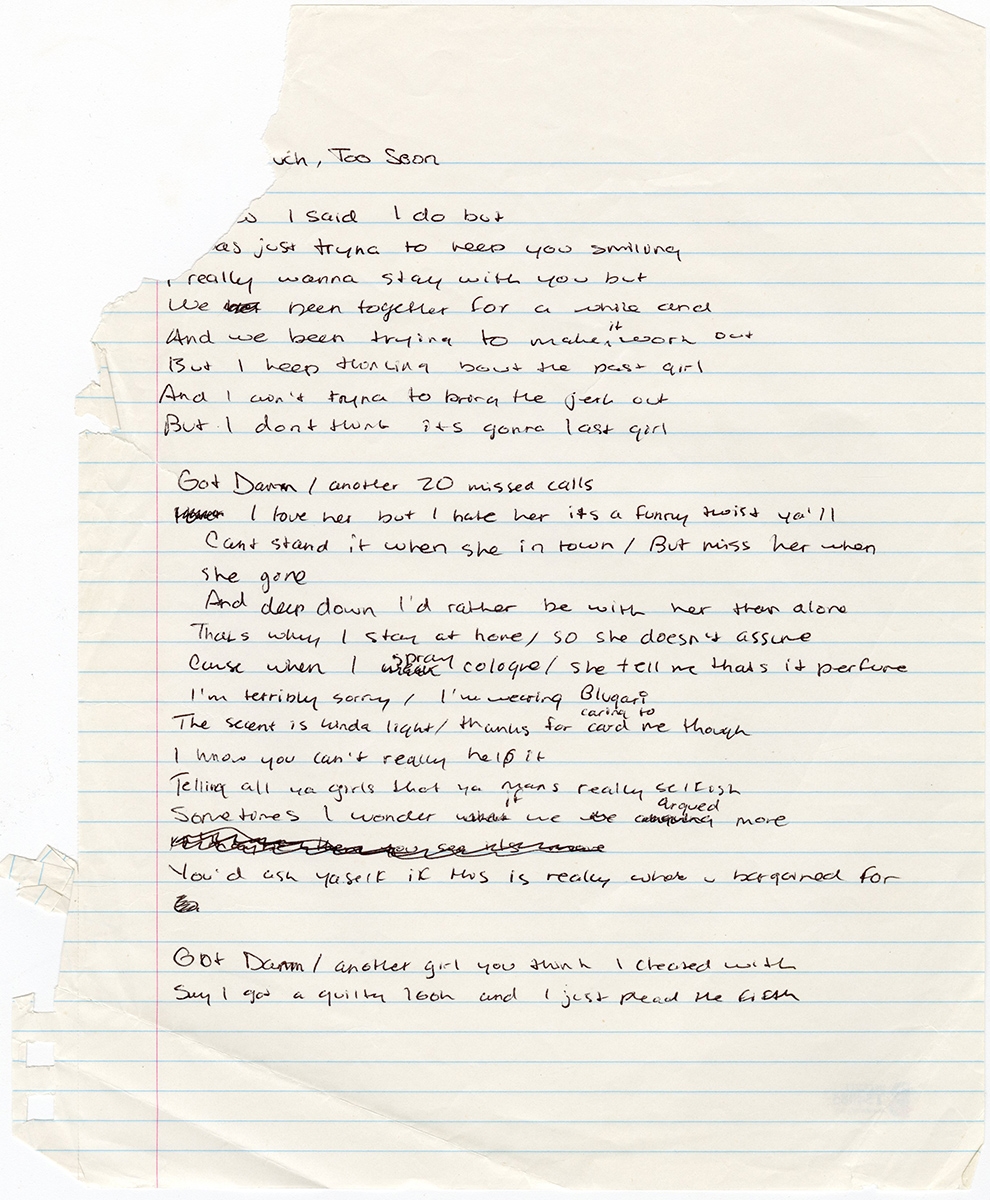 uch, Too Soon
I said I do but
as just tryna to keep you smiling
I really wanna stay with you but
We been together for a while and
And we been trying to make it work out
But I keep thinking bout the past girl
And I ain't tryna to bring the jerk out
But I dont think its gonna last girl
Got Damn / another 20 missed calls
I love her but I hate her its a funny twist ya'll
Cant stand it when she in town / But miss her when
she gone
And deep down I'd rather be with her than alone
Thats why I stay at home / so she doesn't assume
Cause when I spray cologne / she tell me thats it perfume
I'm terribly sorry / I'm wearing Blvgari
The scent is kinda light / thanks for caring to me though
I know you can't really help it
Telling all ya girls that ya mans really selfish
Sometimes I wonder if we argued more
You'd ask yaself if this is really what u bargained for
Got Damn / another girl you think I cheated with
Say I got a guilty look and I just plead the fifth